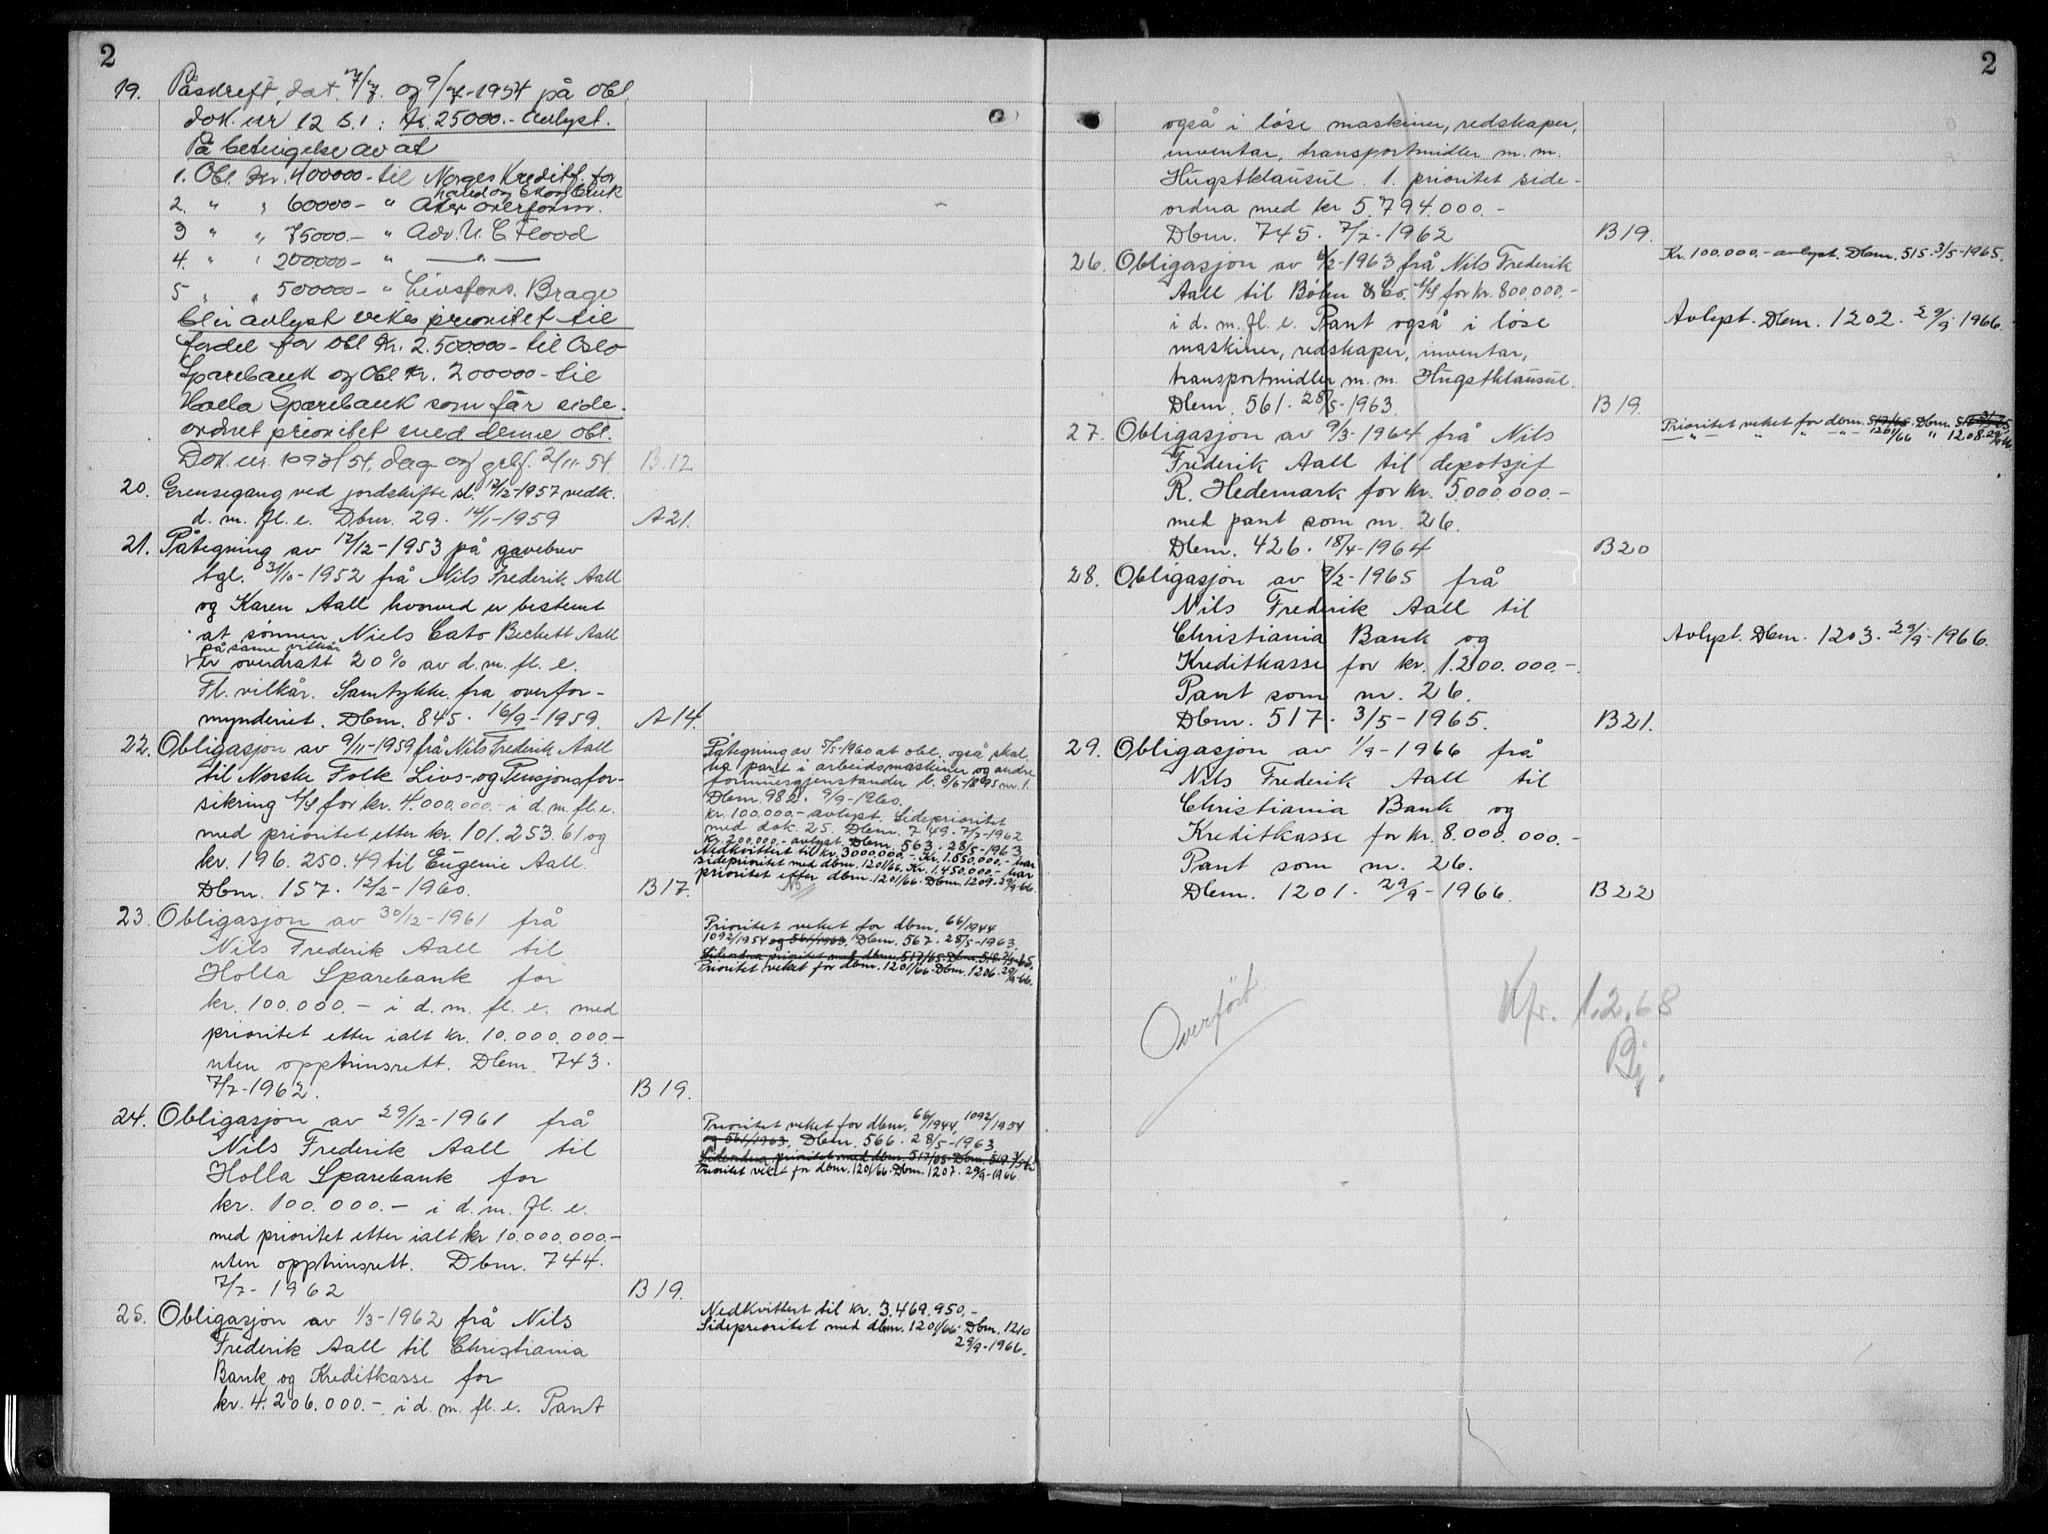 2
19. Påskrift, dat. 7/7. og 9/7-1954 på obl.
dok. nr 12 s. 1: Kr. 25000.- avlyst.
På betingelse av at
1. Obl. kr. 400000- til Norges Kreditf. for
land og skogbruk
2. " " 60000- " overform.
3 " " 75000.- " Adv. N. C. Flood
4. " " 200000- " —"—
5 " " 500000- " Livsfors. Brage
blir avlyst vikes prioritet til
fordel for obl kr. 2.500.000- til Oslo
Sparebank og obl kr. 200000- til
Holla Sparebank som får side-
ordnet prioritet med denne obl.
Dok. nr. 1093/54, dag og grbf. 2/11-54. B.12
20. Grensegang ved jordskifte sl. 12/12-1957 vedk.
d. m. fl. e. Dbnr. 29. 14/1-1959 A21.
21. Påtegning av 12/12-1953 på gavebrev
tgl. 31/10-1952 frå Nils Frederik Aall
og Karen Aall hvorved er bestemt
at sønnen Niels Cato Beckett Aall
på same vilkår
er overdratt 20% av d. m. fl. e.
Fl. vilkår. Samtykke fra overfor-
mynderiet. Dbnr. 845. 16/9-1959. A14.
22. Obligasjon av 9/11-1959 frå Nils Frederik Aall
til Norske Folk Livs- og Pensjonsfor-
sikring A/S for kr. 4.000.000,- i d. m. fl. e.
med prioritet etter kr. 101.253.61 og
kr. 196.250.49 til Eugenie Aall.
Dbnr. 157. 12/2-1960. B17.
Påtegning av 5/5-1960 at obl. også skal
ha pant i arbeidsmaskiner og andre
formuesgjenstander l. 8/6-1895 nr. 1.
Dbnr. 982. 9/9-1960.
kr. 100.000.- avlyst. Sideprioritet
med dok. 25. Dbnr. 749. 7/7-1962
Kr. 200.000.- avlyst. Dbnr. 563. 28/5-1963
Nedkvittert til kr. 3000.000.- Kr. 1.550.000.- har
sideprioritet med dbnr. 1201/66. Kr. 1.450.000.- har
prioritet etter dbnr. 1201/66. Dbnr. 1209. 29/9-66.
23. Obligasjon av 30/12-1961 frå
Nils Frederik Aall til
Holla Sparebank for
kr. 100.000.- i d. m. fl. e. med
prioritet etter ialt kr. 10.000.000.-
uten opptrinsrett. Dbnr. 743.
7/7-1962. B19.
Prioritet veket for dbnr. 66/1944
1092/1954 og 561/1963. Dbnr. 567. 28/5-1963.
Sideordna prioritet med dbnr. 517/65. Dbnr. 518. 3/5-65.
Prioritet veket for dbnr. 1201/66. Dbnr. 1206. 29/9-66.
24. Obligasjon av 29/12-1961 frå
Nils Frederik Aall til
Holla Sparebank for
kr. 100.000.- i d. m. fl. e.
med prioritet etter ialt kr 10.000.000.-
uten opptrinsrett. Dbnr. 744.
7/7-1962 B19.
Prioritet veket for dbnr. 66/1944, 1092/1954
og 561/1963. Dbnr. 566. 28/5-1963
Sideordna prioritet med dbnr. 517/65. Dbnr. 519 3/5-65
Prioritet veket for dbnr. 1201/66. Dbnr. 1207. 29/9-1966.
25. Obligasjon av 1/3-1962 frå Nils
Frederik Aall til Christiania
Bank og Kreditkasse for
kr. 4.206.000.- i d. m. fl. e. Pant
Nedkvittert til kr. 3.469.950.-
Sideprioritet med dbnr. 1201/66. Dbnr. 1210
29/9-1966.
2
også i løse maskiner, redskaper,
inventar, transportmidler m. m.
Hugstklausul. 1. prioritet side-
ordna med kr 5.794.000.-
Dbnr. 745. 7/7-1962 B19.
26. Obligasjon av 6/2-1963 frå Nils Frederik
Aall til Bøhn & Co. A/S for kr. 800.000.-
i d. m. fl. e. Pant også i løse
maskiner, redskaper, inventar,
transportmidler m. m. Hugstklausul.
Dbnr. 561. 28/5-1963. B19.
Kr. 100.000.- avlyst. Dbnr. 515. 3/5-1965.
Avlyst. Dbnr. 1202. 29/9-1966.
27. Obligasjon av 9/3-1964 frå Nils
Frederik Aall til depotsjef
R. Hedemark for kr. 5.000.000.-
med pant som nr. 26.
Dbnr. 426. 18/4-1964 B20
Prioritet veket for dbnr. 517/65. Dbnr.
—"— " " —"— 1201/66 " 1208. 29/9-66.
28. Obligasjon av 9/2-1965 frå
Nils Frederik Aall til
Christiania Bank og
Kreditkasse for kr. 1.200.000.-.
Pant som nr. 26.
Dbnr. 517. 3/5-1965. B21.
Avlyst. Dbnr. 1203. 29/9-1966.
29. Obligasjon av 1/9-1966 frå
Nils Frederik Aall til
Christiania Bank og
Kreditkasse for kr. 8.000.000.-
Pant som nr. 26.
Dbnr. 1201. 29/9-1966. B22
Overført
Kfr. 1.2.68
Bj.